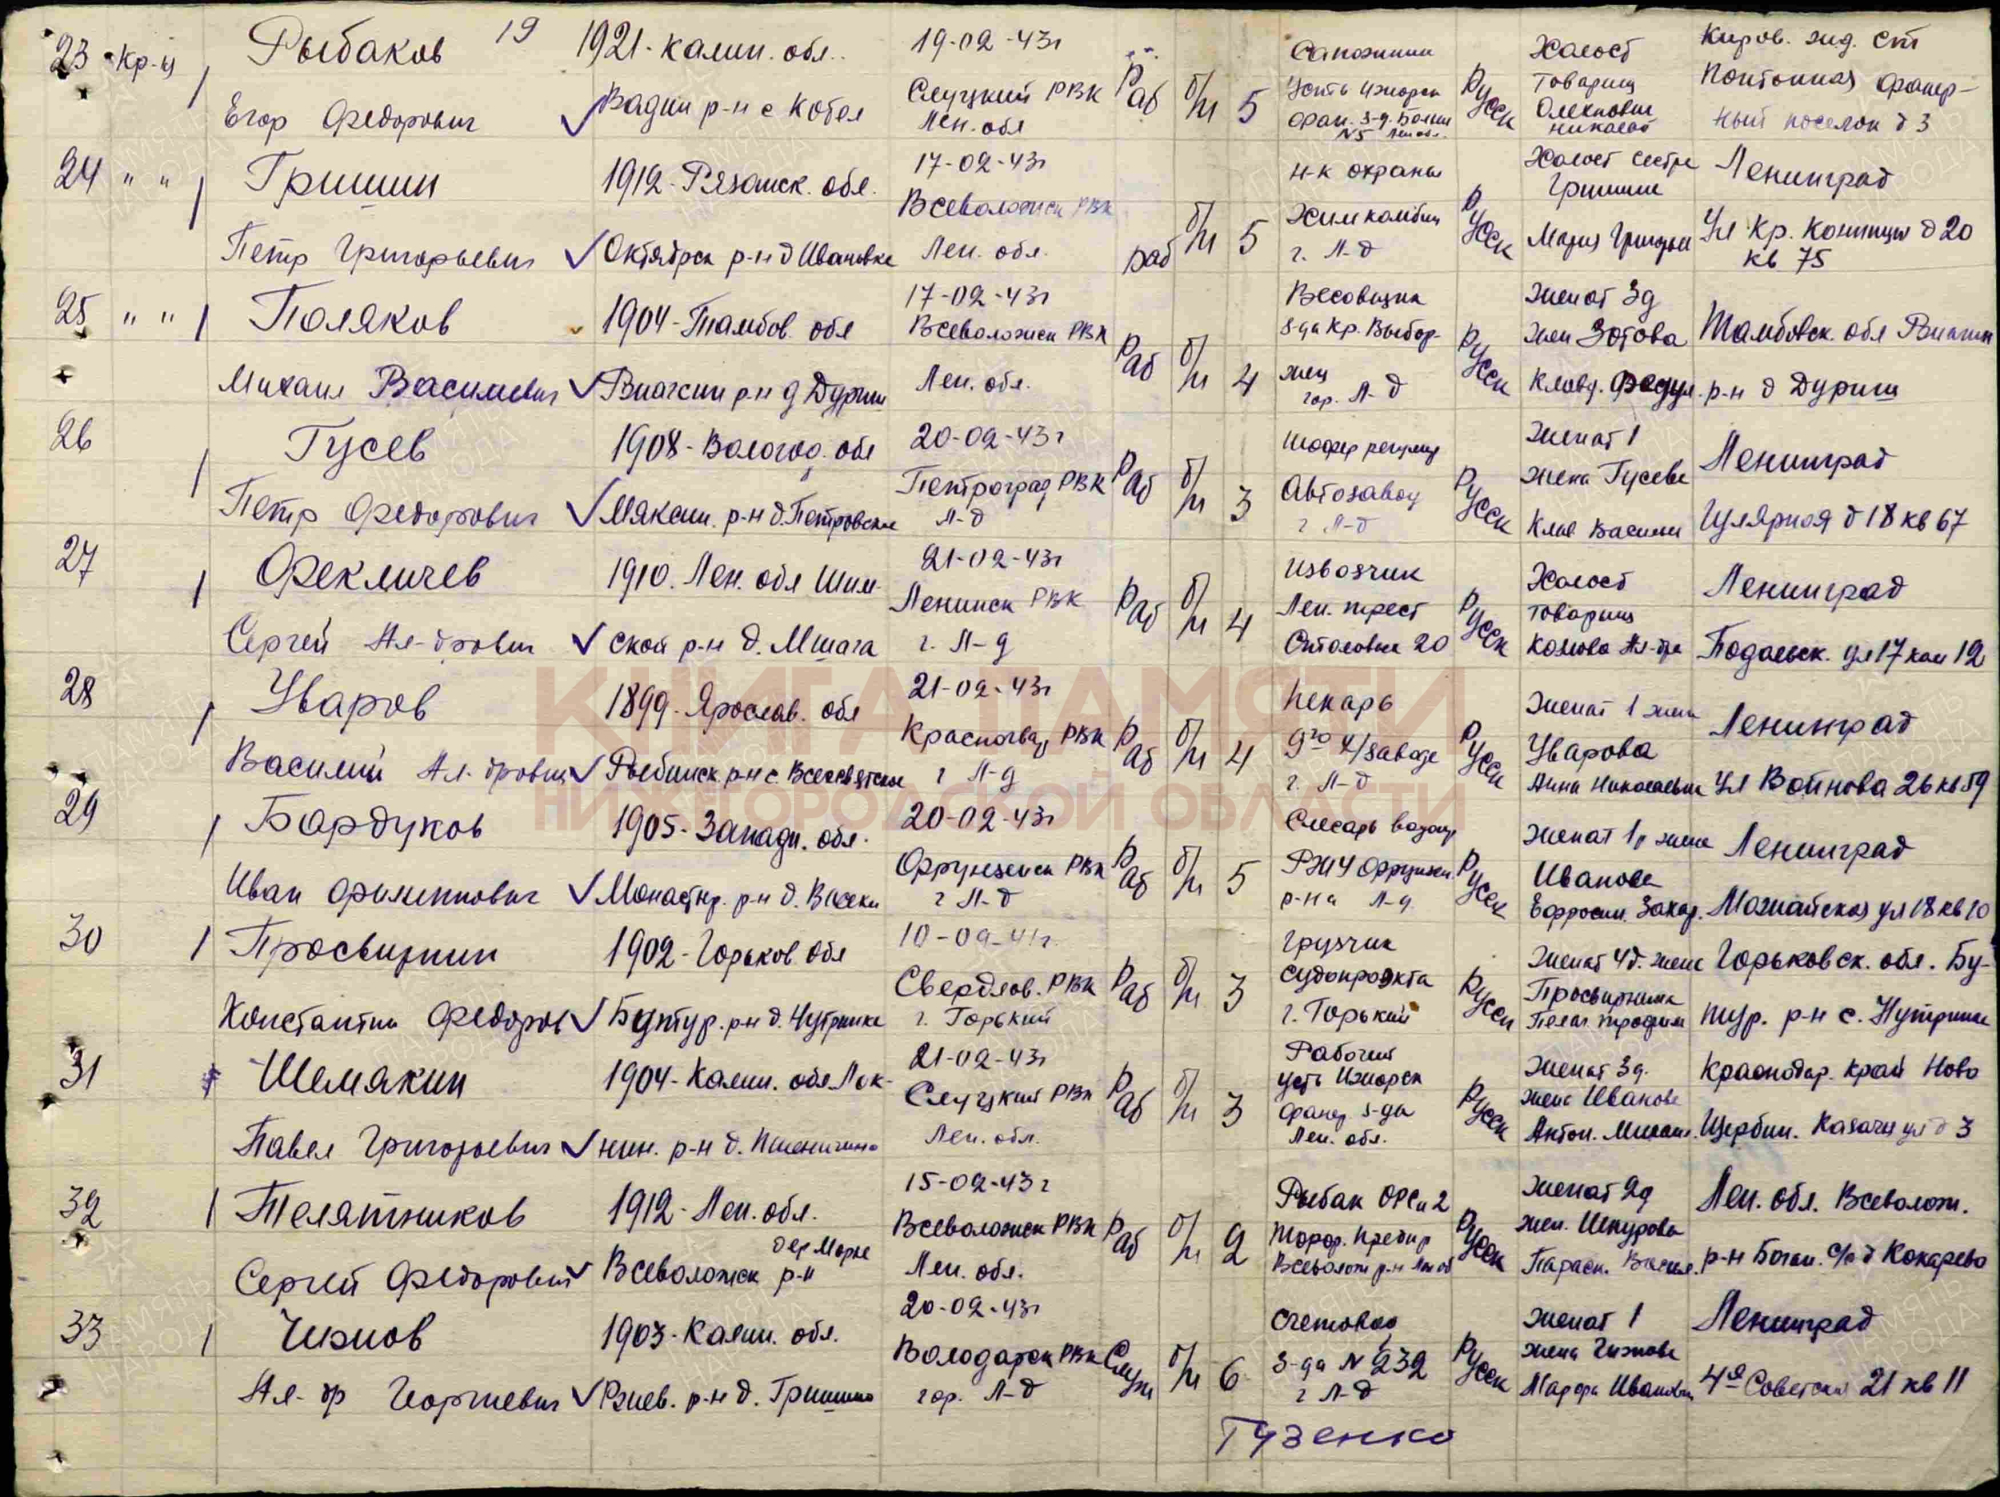 19
23 Кр-ц Рыбаков 1921-калин. обл. 19-02-43г Сапожник Холост Киров. жд. ст
Егор Федорович с Слуцкий РВК Лен. обл Раб б/п 5 Усть Ижора N5 Русск Товарищ Николай Понтонная фанер-
ный поселок д 3
24 " " Гришин 1912-Рязанск. обл. 17-02-43г н-к охраны Холост сестра Ленинград
Петр Григорьевич Октябрск р-н д Ивановка Всеволожск РВК Лен. обл. раб б/п 5 Химкомбин г. Л-д Русск Гришина Мария Григорьев Ул Кр. Конницы д 20
кв 75
25 " " Поляков 1904-Тамбов. обл 17-02-43г Весовщик Женат 3д Тамбовск. обл
Михаил Васильевич р-н д Всеволожск РВК Лен. обл. Раб б/п 4 з-да Кр. Выбор-
жец гор. Л-д Русск жен Зотова Клавд. р-н д
26 Гусев 1908-Вологод. обл 20-02-43г шофер Женат 1 Ленинград
Петр Федорович Мяксин. р-н д. Петровское Петроград РВК Л-д Раб б/п 3 Автозавод г Л-д Русск жена Гусева Клав Васильи д 18 кв 67
27 Фекличев 1910. Лен. обл Шим- 21-02-43г Извозчик Холост Ленинград
Сергей Ал-дрович ской р-н д. Мшага Ленинск РВК г. Л-д Раб б/п 4 Лен. трест Столовые 20 Русск товарищ Ал-дра Подольск. ул 17 ком 12
28 Уваров 1899-Ярослав. обл 21-02-43г Пекарь Женат 1 жена Ленинград
Василий Ал-дрович Рыбинск. р-н с. Всехсвятское Красногвард РВК г Л-д Раб б/п 4 9го х/заводе г. Л-д Русск Уварова Анна Николаевна Ул Войнова 26 кв 59
29 Бардуков 1905-Западн. обл. 20-02-43г Слесарь водопр Женат 1, жена Ленинград
Иван Филиппович Монастыр. р-н д. Фрунзенск РВК г Л-д Раб б/п 5 РЖУ Фрунзен. р-на Л-д Русск Иванова Ефросин. Захар. Можайская ул 18 кв 10
30 Просвирнин 1902-Горьков. обл 10-09-41г. Грузчик Женат 4д. жена Горьковск. обл. Бу-
Константин Федоров Бутур. р-н д. Нутринка Свердлов. РВК г. Горький Раб б/п 3 г. Горький Русск Просвирнина Пелаг Трофим тур. р-н с. Нутринка
31 Шемякин 1904-Калин. обл Лок- 21-02-43г Рабочий Женат 3д. Краснодар. край Ново
Павел Григорьевич нин. р-н д. Пшеничино Слуцкий РВК Лен. обл. Раб б/п 3 Усть Ижорск фанер з-да Лен. обл. Русск жена Иванова Антон. Михаил. Щербин. Казачья ул д 3
32 Телятников 1912-Лен. обл. 15-02-43г Рыбак Женат 2д Лен. обл. Всеволож.
Сергей Федорович Всеволожск р-н дер Морье Всеволожск РВК Лен. обл. Раб б/п 2 Всеволож р-н Лен об Русск жен. Шкурова Параск. Васил. р-н с/с д Кокарево
33 Чижов 1903-Калин. обл. 20-02-43г Счетовод Женат 1 Ленинград
Ал-др Георгиевич Ржев. р-н д. Гришино Володарск РВК гор. Л-д Служ б/п 6 З-да N 232 г Л-д Русск жена Чижова Марфа Ивановн 4я Советская 21 кв 11
Гузенко
КНИГА ПАМЯТИ
НИЖЕГОРОДСКОЙ ОБЛАСТИ